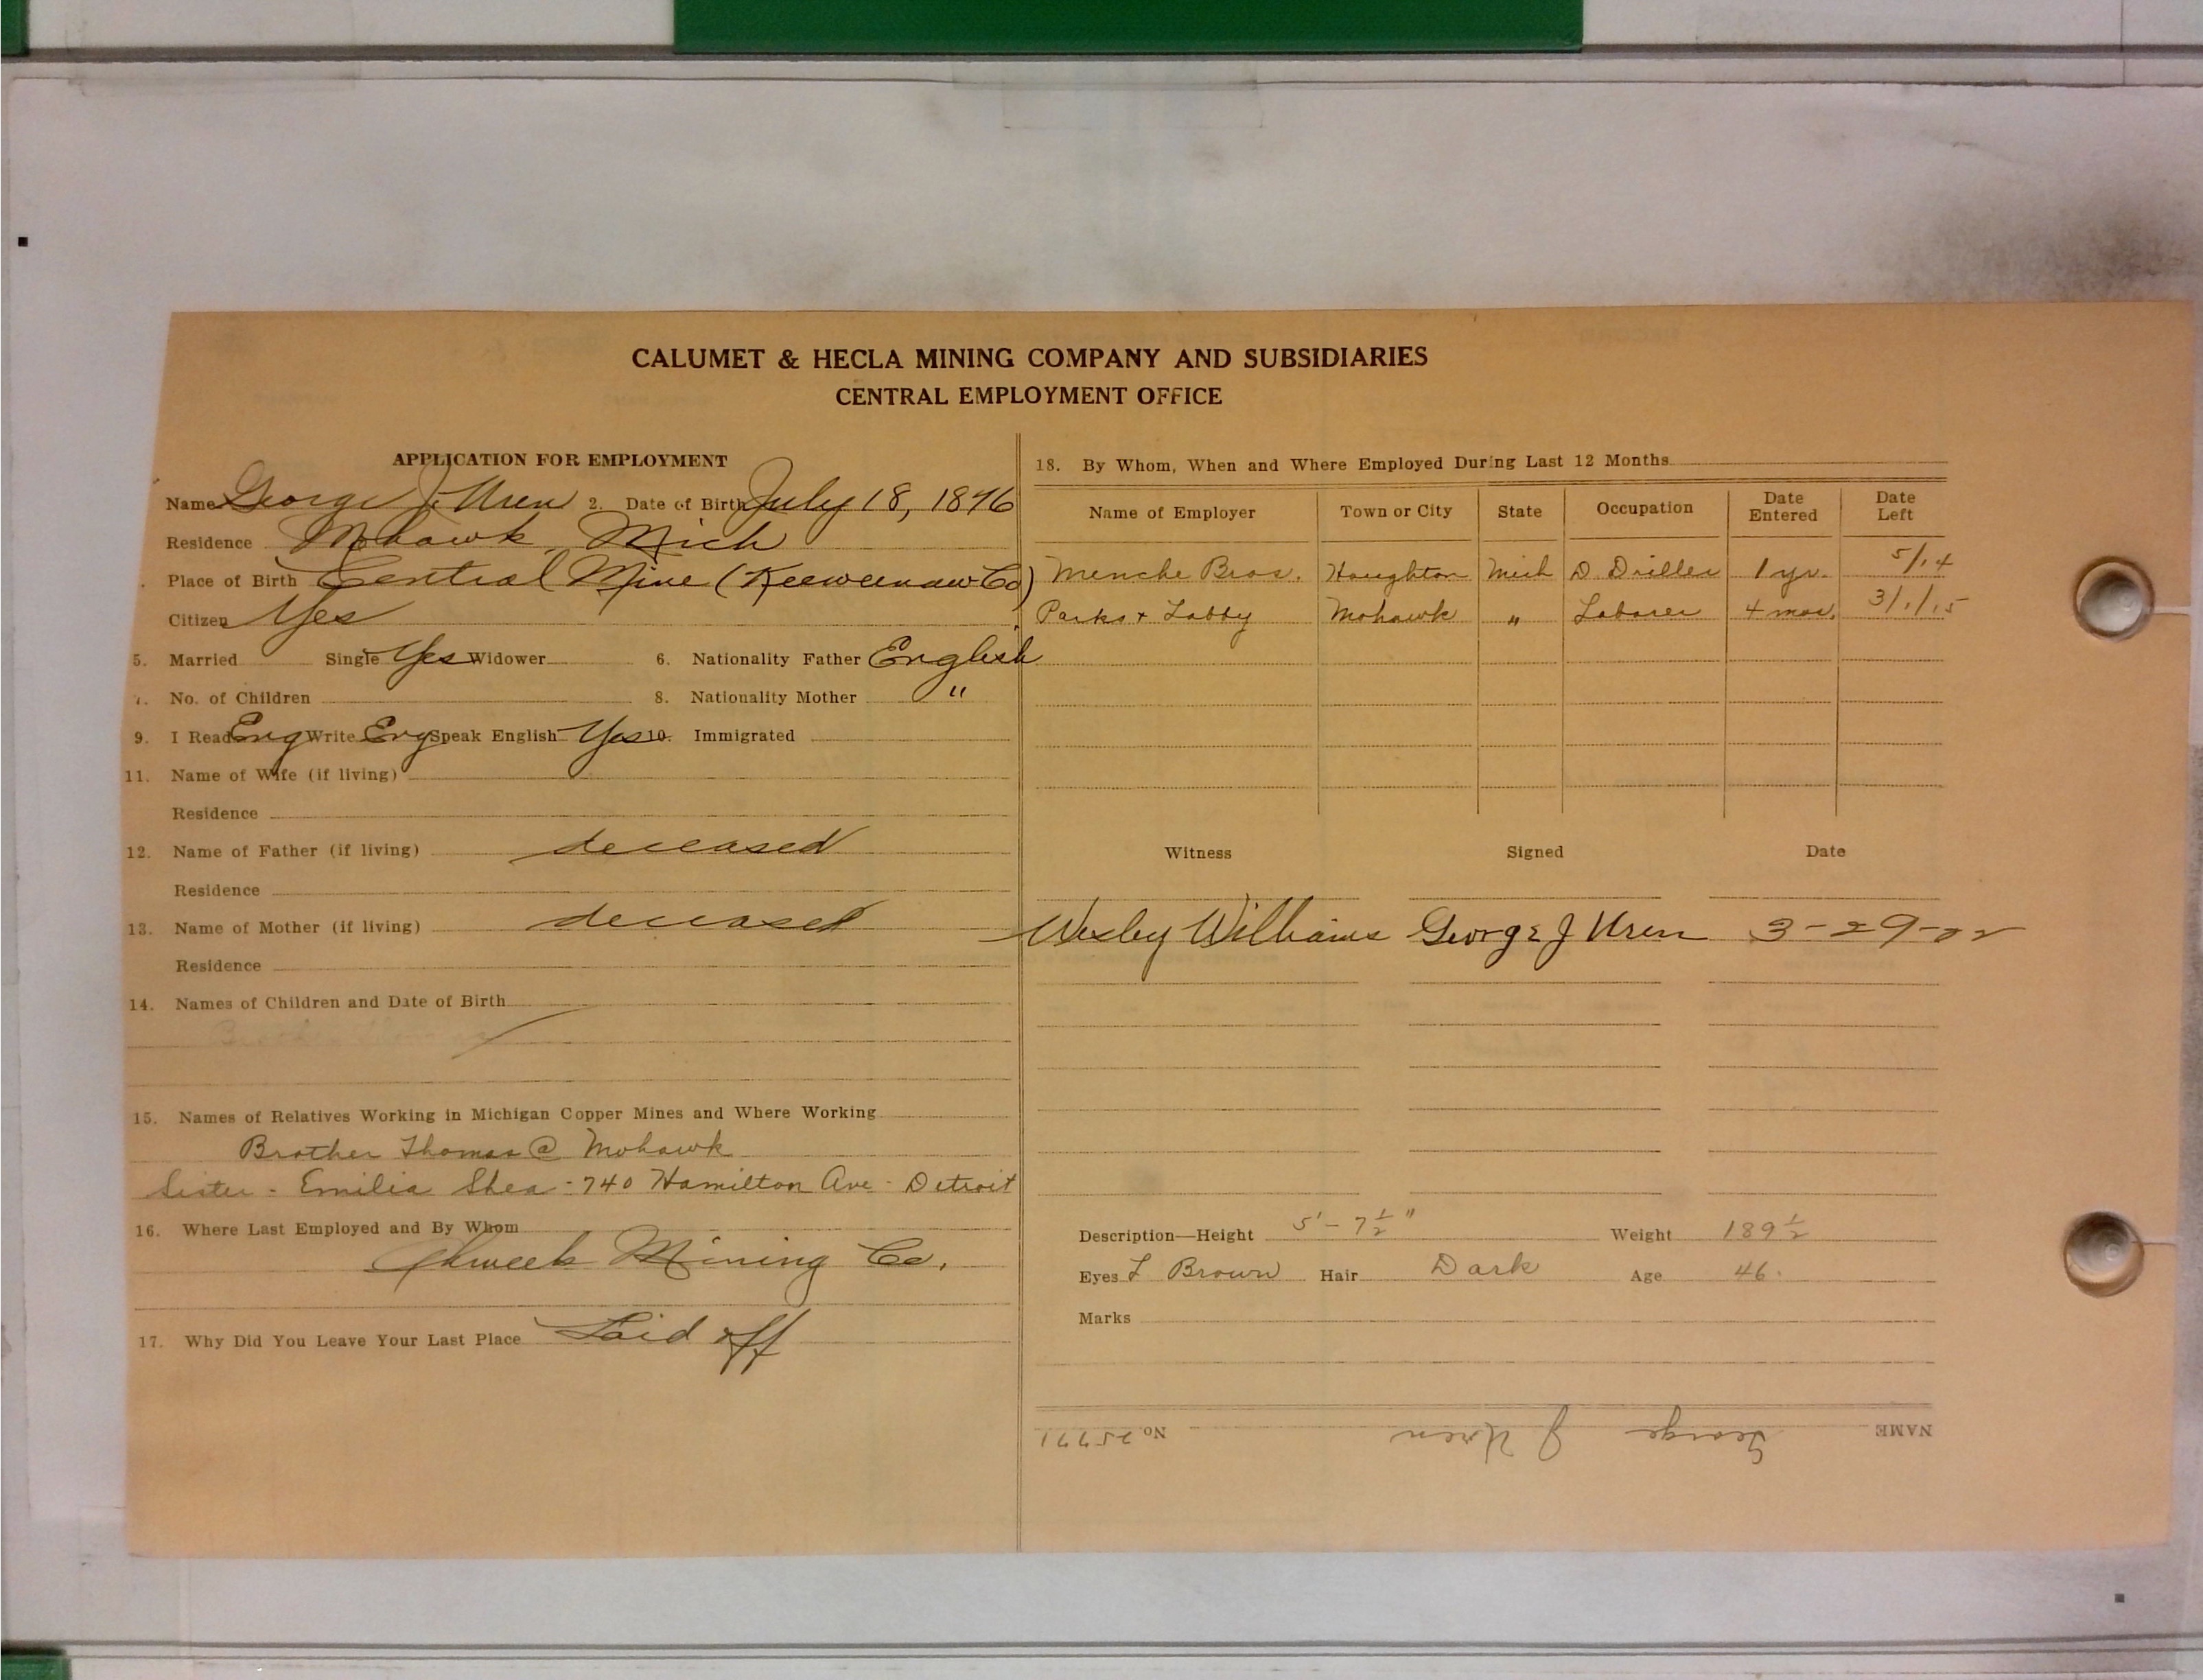 CALUMET & HECLA MINING COMPANY AND SUBSIDIARIES
CENTRAL EMPLOYMENT OFFICE
APPLICATION FOR EMPLOYMENT
Name George J. Uren 2. Date of Birth July 18, 1876
Residence Mohawk, Mich
Place of Birth Central Mine (Keweenaw Co)
Citizen Yes
5. Married Single Yes Widower 6. Nationality Father English
7. No. of Children 8. Nationality Mother "
9. I Read Eng Write Eng Speak English Yes 10. Immigrated
11. Name of Wife (if living)
Residence
12. Name of Father (if living) deceased
Residence
13. Name of Mother (if living) deceased
Residence
14. Names of Children and Date of Birth
15. Names of Relatives Working in Michigan Copper Mines and Where Working
Brother Thomas @ Mohawk
Sister - Emilia Shea - 740 Hamilton Ave - Detroit
16. Where Last Employed and By Whom
Ahmeek Mining Co.
17. Why Did You Leave Your Last Place Laid off
18. By Whom, When and Where Employed During Last 12 Months
Name of Employer Town or City State Occupation Date Entered Date Left
Menche Bros. Houghton Mich D. Driller 1 yr. 5/14
Parks + Labby Mohawk " Laborer 4 mos. 3/1/15
Witness Signed Date
Wesley Williams George J Uren 3-29-22
Description—Height 5' - 7 1/2" Weight 189 1/2
Eyes L Brown Hair Dark Age 46.
Marks
NAME George J Uren No. 25771